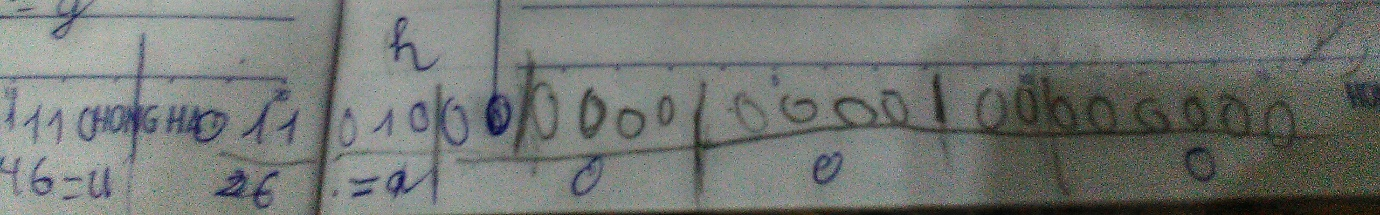 = g
h
111 CHONG HAO 11 010 00 0000 0000 00 000000
46=u 26 =a 0 0 0